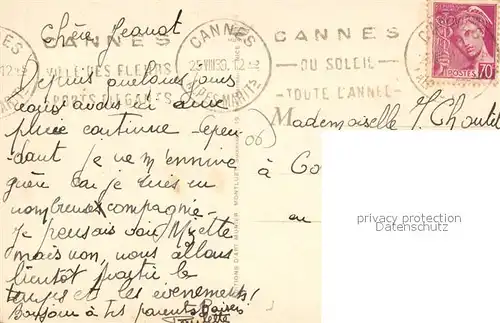 Chère Jeanot
CANNES
VILLE DES FLEURS
SPORTS ÉLÉGANTS
CANNES
25 VIII 39
ALPES MARITMES
CANNES
OU SOLEIL
TOUTE L'ANNEE
POSTES
70
Depuis quelques jours
nous avons ici une
pluie continue Cepen-
dant je ne m'ennuie
guère car je suis en
nombreuse compagnie.
je pensais voir Myette
mais non, nous allons
bientôt partir le
temps et les évènements!
Bonjour à tes parents Baisers
06
Mademoiselle J.
à Co
au
privacy protection
Datenschutz